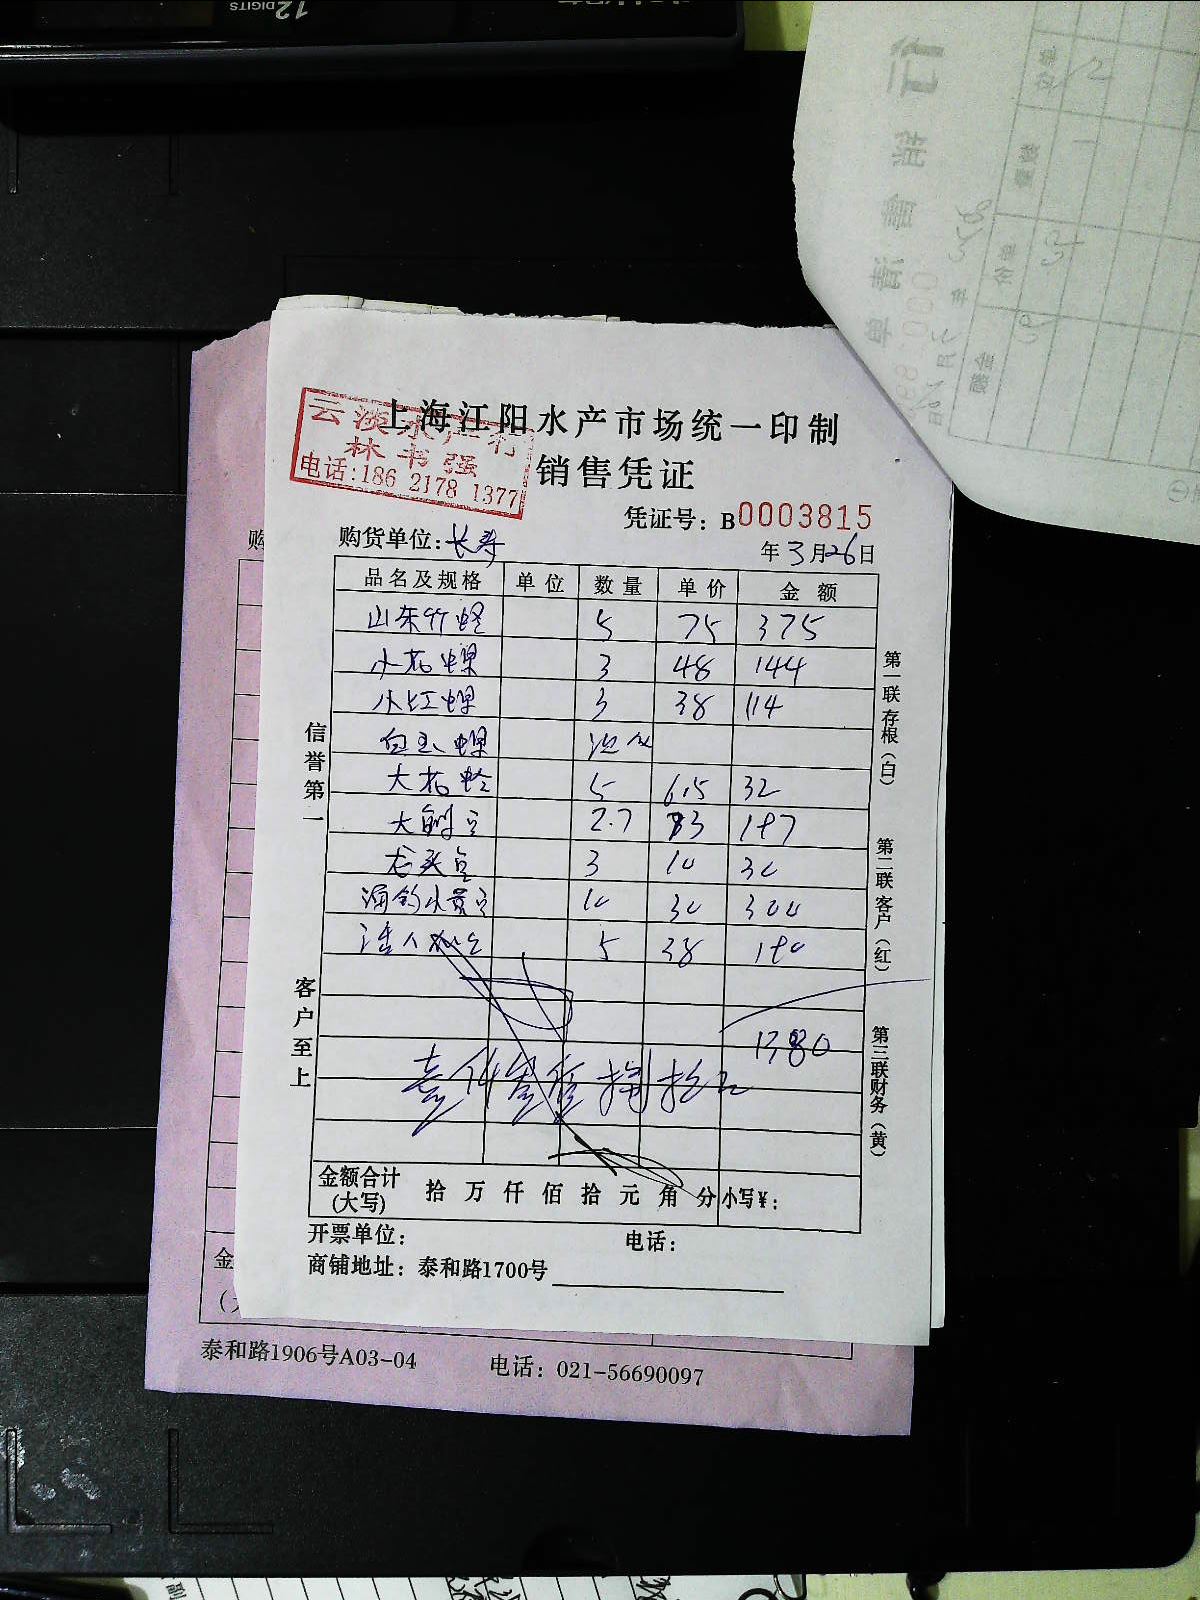 12 DIGITS
上海江阳水产市场统一印制
云淡水产行
林书强
电话:186 2178 1377
销售凭证
凭证号：B0003815
购货单位:长寿
年 3月26日
品名及规格 单位 数量 单价 金额
山东竹蛏 5 75 375
小花螺 3 48 144
小红螺 3 38 114
白玉螺
大花蛤 5 6.5 32
2.7 187
龙头 3 10 30
10 30 300
5 38 190
1380
金额合计(大写) 拾 万 仟 佰 拾 元 角 分 小写￥:
开票单位: 电话:
商铺地址：泰和路1700号
信誉第一
客户至上
第一联存根（白）
第二联客户（红）
第三联财务（黄）
购
金
泰和路1906号A03-04 电话：021-56690097